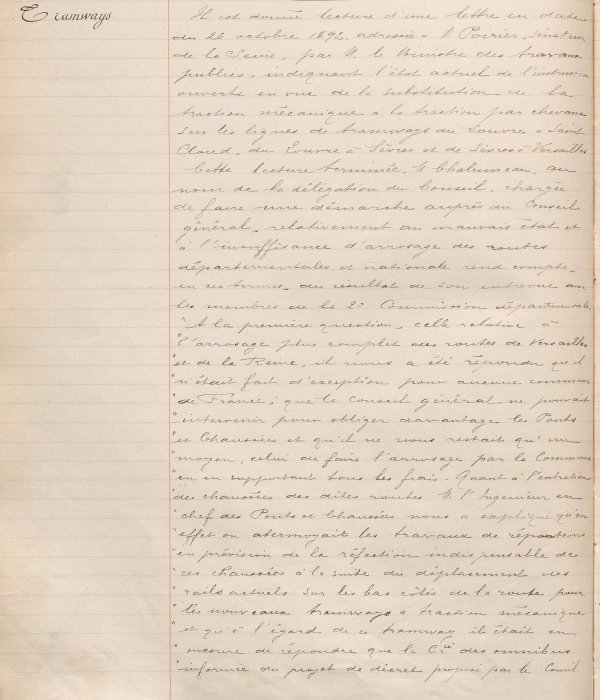 Tramways
Il est donné lecture d'une lettre en date
du 26 octobre 1892, adressée à M. Poirier, Sénateur
de la Seine, par M. le Ministre des travaux
publics, indiquant l'état actuel de l'instruction
ouverte en vue de la substitution de la
traction mécanique à la traction par chevaux
sur les lignes de tramways du Louvre à Saint
Cloud, du Louvre à Sèvres et de Sèvres à Versailles
Cette lecture terminée, M. Chalumeau, au
nom de la délégation du Conseil, chargée
de faire une démarche auprès du Conseil
général, relativement au mauvais état et
à l'insuffisance d'arrosage des routes
départementales et nationale rend compte,
en ces termes, du résultat de son entrevue avec
les membres de la 2e Commission départementale
"A la première question, celle relative à
"l'arrosage plus complet des routes de Versailles
"et de la Reine, il nous a été répondu qu'il
"n'était fait d'exception pour aucune commune
"de France; que le Conseil général ne pouvait
"intervenir pour obliger davantage les Ponts
"et Chaussées et qu'il ne nous restait qu'un
"moyen, celui de faire l'arrosage par la Commune
"en en supportant tous les frais. Quant à l'entretien
"des chaussées des dites routes M. l'Ingénieur en
"chef des Ponts et Chaussées nous a expliqué qu'en
"effet on atermoyait les travaux de réparations
"en prévision de la réfection indispensable de
"ces chaussées à la suite du déplacement des
"rails actuels sur les bas côtés de la route pour
"les nouveaux tramways à traction mécanique
"et qu'à l'égard de ce tramway il était en
"mesure de répondre que la Cie des omnibus
"informée du projet de décret proposé par le Conseil